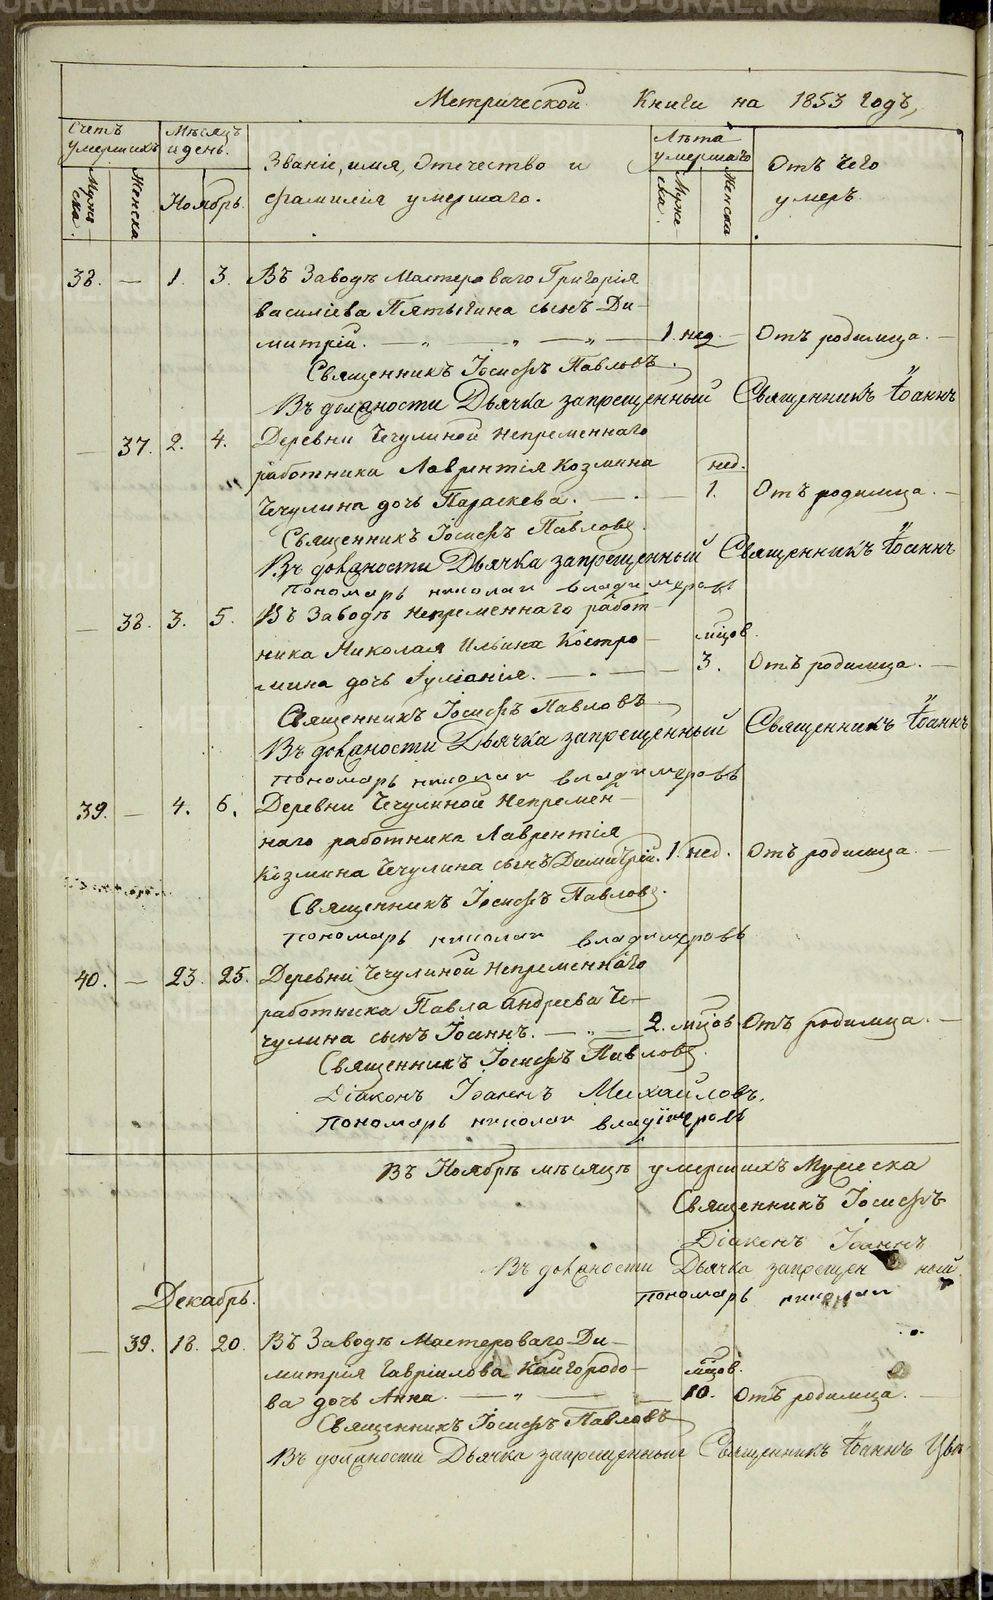 Метрической Книги на 1853 годъ,
Счетъ умершихъ
Мужеска.
Женска
Мѣсяцъ и день.
Ноябрь.
Званіе, имя, Отечество и
фамилія умершаго.
Лѣта умершаго
Мужеска.
Женска
Отъ чего
умеръ.
38. — 1. 3. Въ Заводѣ Мастероваго Григорія
василіева Пятыгина сынъ Ди-
митрій. — „ — „ — „ — 1. нед. — Отъ родимца. —
Священникъ Іосифъ Павловъ.
Въ должности Дьячка запрещенный Священникъ Іоаннъ
— 37. 2. 4. Деревни Чечулиной Непременнаго
работника Лаврентія Козмина нед.
Чечулина дочь Параскева. — . — 1. Отъ родимца. —
Священникъ Іосифъ Павловъ.
Въ должности Дьячка запрещенный Священникъ Іоаннъ
пономарь николай владимеровъ
— 38. 3. 5. Въ Заводѣ Непременнаго работ-
ника Николая Ильина Костро- мѣцов.
мина дочь Іуліанія. — . — 3. Отъ родимца. —
Священникъ Іосифъ Павловъ
Въ должности Дьячка запрещенный Священникъ Іоаннъ
пономарь николай владимеровъ
39. — 4. 6. Деревни Чечулиной Непремен-
наго работника Лаврентія
Козмина Чечулина сынъ Димитрій. 1. нед. Отъ родимца. —
Священникъ Іосифъ Павловъ.
пономарь николай владимеровъ
40. — 23. 25. Деревни Чечулиной Непременнаго
работника Павла Андреева Че-
чулина сынъ Іоаннъ. — „ — 2. мѣцов Отъ родимца. —
Священникъ Іосифъ Павловъ.
Діаконъ Іоаннъ Михайловъ.
пономарь николай владимеровъ
Въ Ноябрѣ мѣсяцѣ умершихъ Мужеска
Священникъ Іосифъ
Діаконъ Іоаннъ
Въ должности Дьячка запрещенный
пономарь николай
Декабрь.
— 39. 18. 20. Въ Заводѣ Мастероваго Ди-
митрія Гавріилова Кайгородо- мѣцов.
ва дочь Анна. — „ — 10. Отъ родимца. —
Священникъ Іосифъ Павловъ
Въ должности Дьячка запрещенный Священникъ Іоаннъ
METRIKI.GASO-URAL.RU